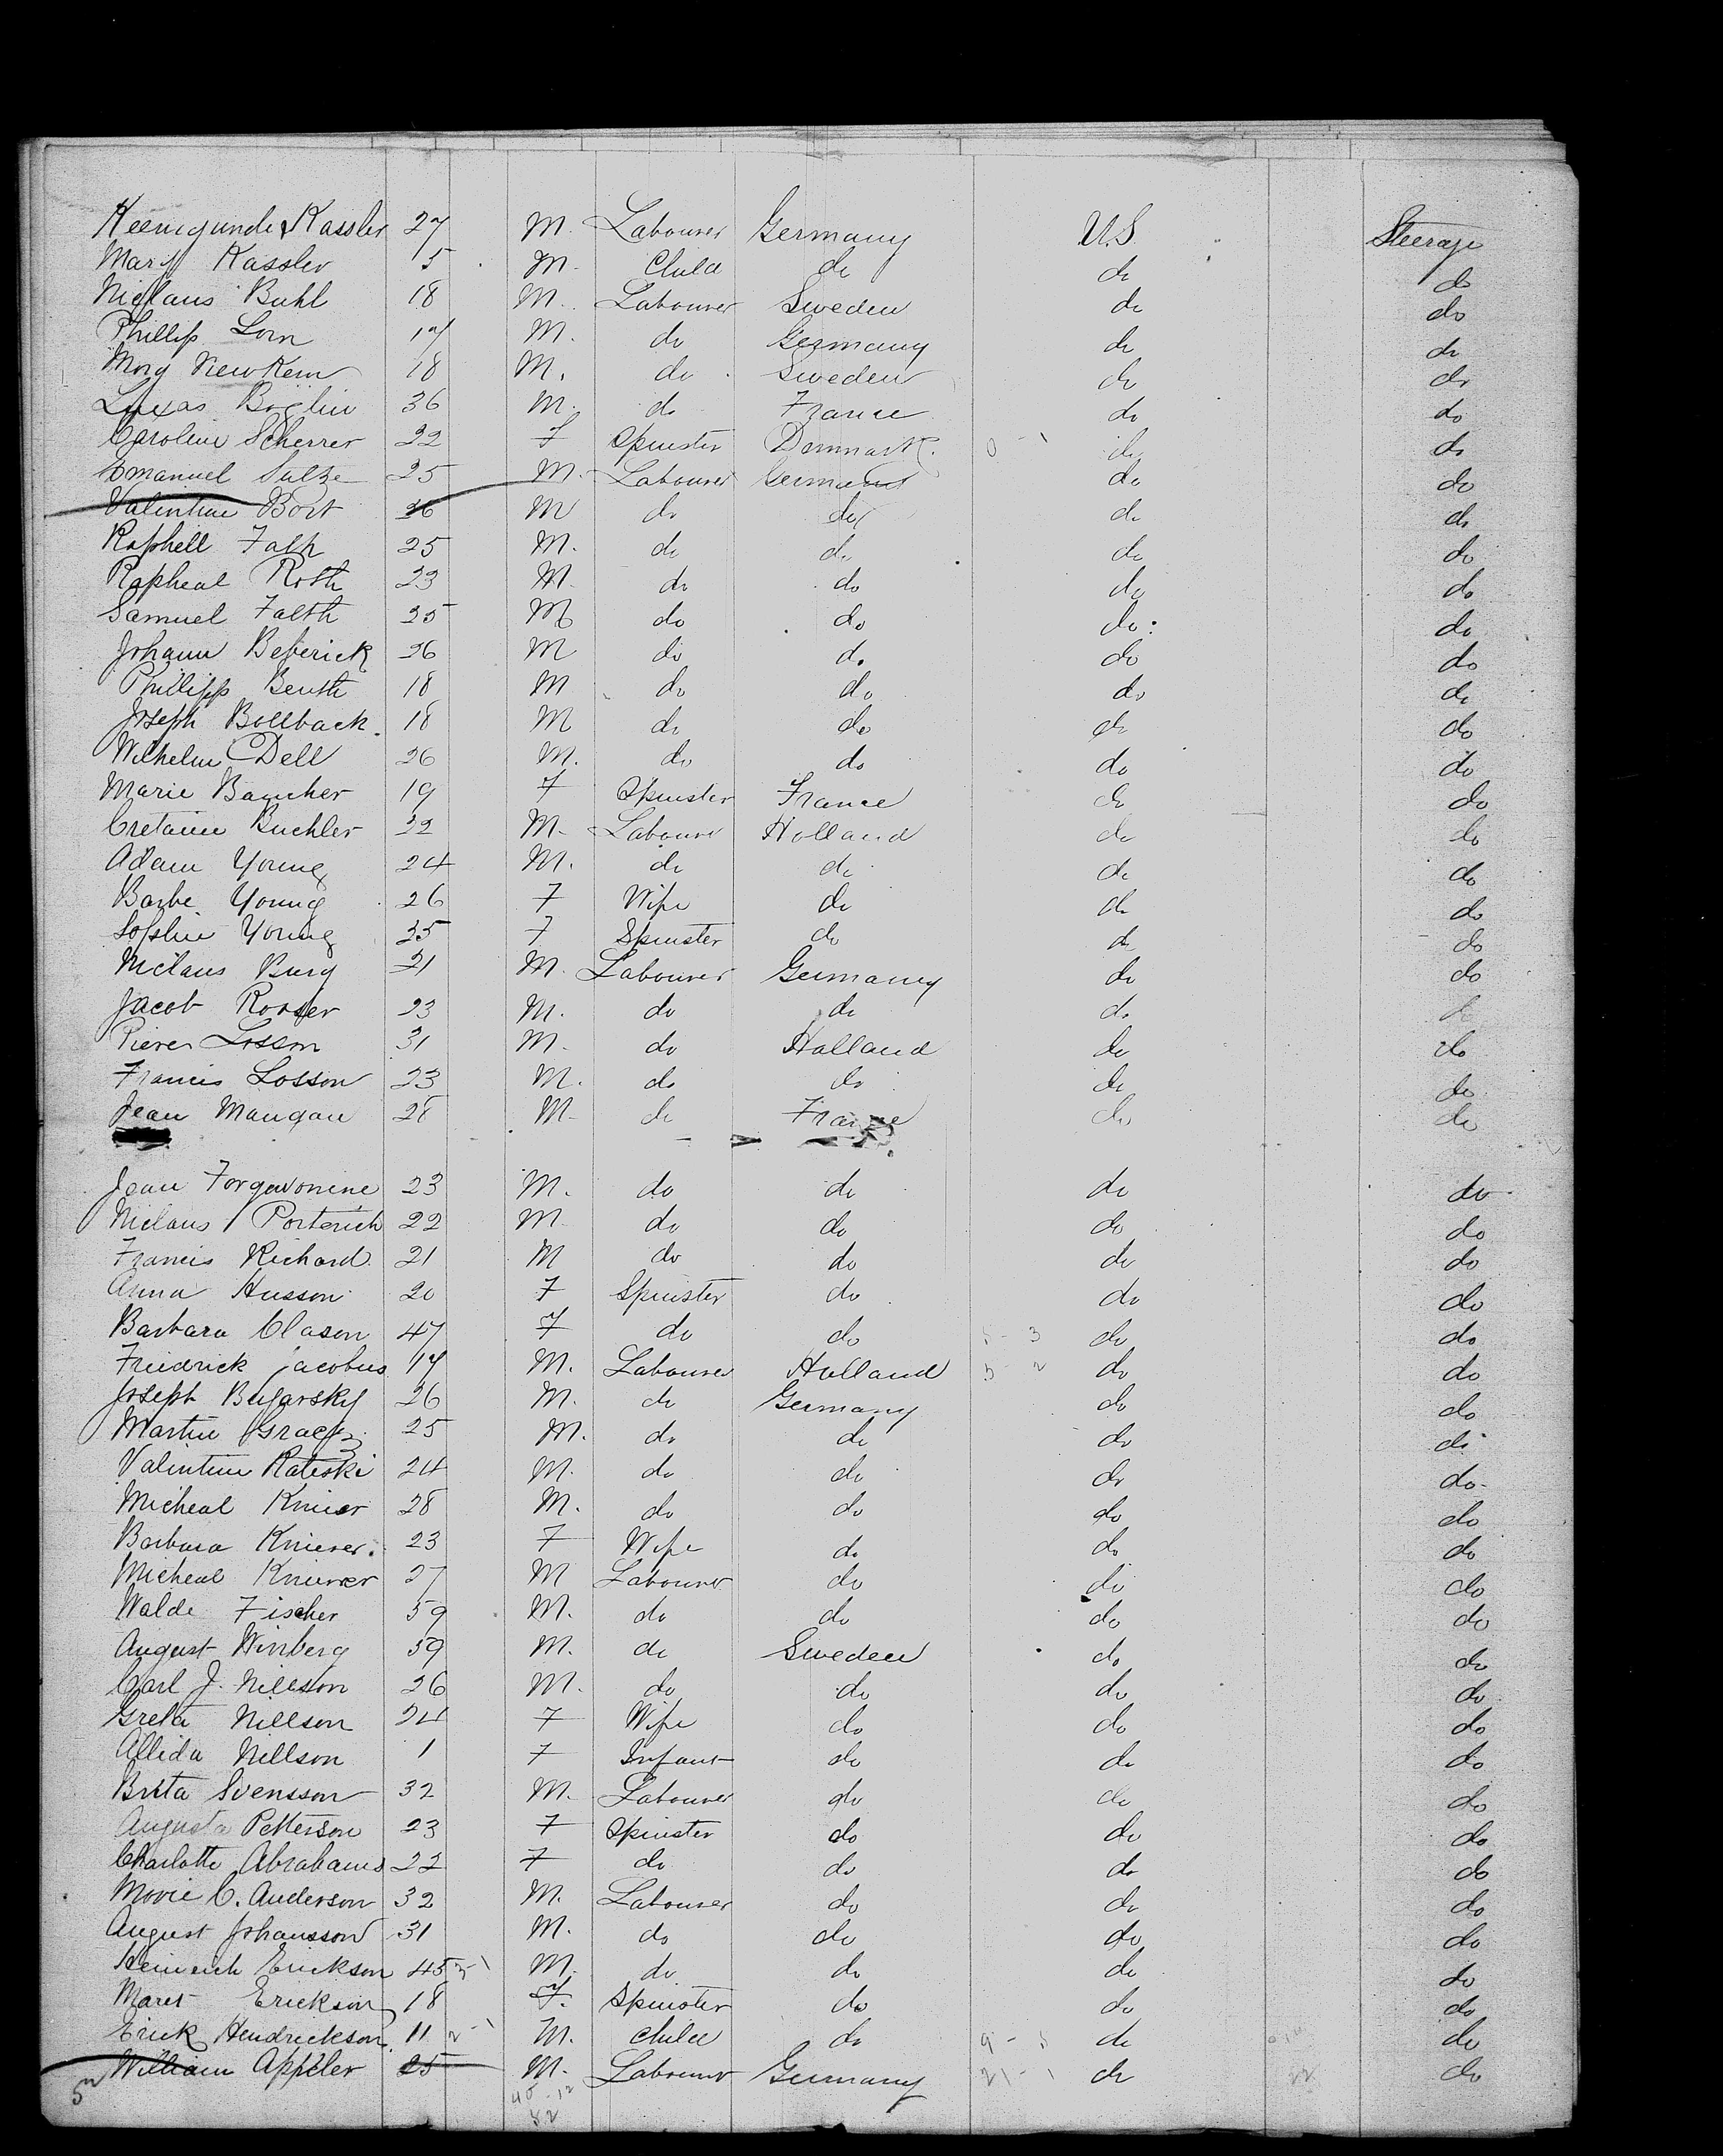 Keenigunde Kassler 27 M. Labourer Germany U.S. Steerage
Mary Kassler 5 M. Child do do do
Niclaus Buhl 18 M. Labourer Sweden do do
Phillip Lorn 17 M. do Germany do do
18 M. do Sweden do do
Boglin 36 M. do France do do
Caroline Scherrer 22 F Spinster Denmark. 0 - 1 do do
Emanuel Sulze 25 M. Labourer Germany do do
Valentine Bort 26 M do do do do
Raphell Falk 25 M. do do do do
Rapheal Roth 23 M. do do do do
Samuel Falth 25 M do do do do
Johann Beferick 26 M do do do do
Phillipp Benth 18 M do do do do
Joseph Bollback. 18 M do do do do
Wilhelm Dell 26 M. do do do do
Marie Baucher 19 F Spinster France do do
Cretaine Buchler 22 M. Labourer Holland do do
Adam Young 24 M. do do do do
Barbe Young 26 F Wife do do do
Sophie Young 25 F Spinster do do do
Niclaus Burg 21 M. Labourer Germany do do
Jacob 23 M. do do do do
Pierer Losson 31 M. do Holland do do
Francis Losson 23 M. do do do do
Jean Mangan 28 M. do France do do
Jean Forgevonine 23 M. do do do do
Niclaus Porterich 22 M. do do do do
Francis Richard 21 M do do do do
Anna Husson 20 F Spinster do do do
Barbara Clason 47 F do do 5 - 3 do do
Friedrick jacobus 17 M. Labourer Holland 5 2 do do
Joseph Bugarsky 26 M. do Germany do do
Martin Graetz 25 M. do do do do
Valentine Rateski 24 M. do do do do
Micheal Knier 28 M. do do do do
Barbara Knierer. 23 F Wife do do do
Micheal Knierer 27 M Labourer do do do
Walde Fischer 59 M. do do do do
August Winberg 39 M. do Sweden do do
Carl J. Nillson 26 M. do do do do
Greta Nillson 24 F Wife do do do
Allida Nillson 1 F Infant do do do
Brita Svensson 32 M. Labourer do do do
Augusta Petterson 23 F Spinster do do do
Charlotte Abrahams 22 F do do do do
Movie C. Anderson 32 M. Labourer do do do
August Johansson 31 M. do do do do
Heinrich Erickson 45 M. do do do do
Maret Erickson 18 F. Spinster do do do
Erick Hendrickson 11 2 - 1 M. child do do do
William Appeler 25 M. Labourer Germany 21 - 1 do 22 do